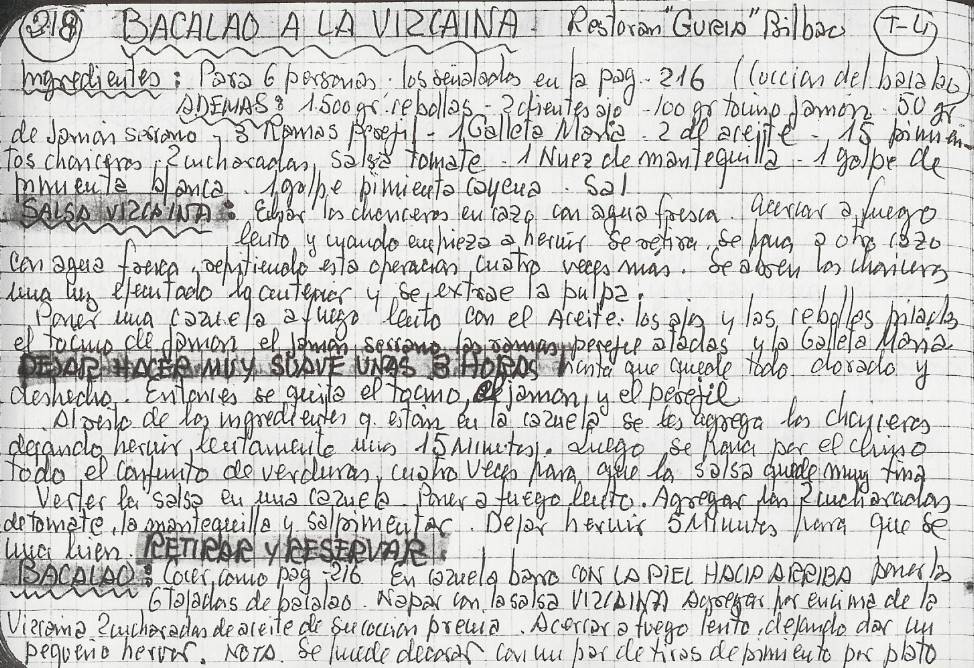 218 BACALAO A LA VIZCAINA. Restoran "GURIA" Bilbao T-4
Ingredientes: Para 6 personas. los señalados en la pag-216 (Coccion del bacalao)
ADEMAS: 1.500 gr. cebollas - 2 dientes ajo - 100 gr tocino Jamon. 50 gr
de Jamon serrano - 3 Ramas Perejil - 1 Galleta Maria - 2 dl aceite - 15 pimien-
tos choriceros, 2 cucharadas, salsa tomate. 1 Nuez de mantequilla - 1 golpe de
pimienta blanca. 1 golpe pimienta cayena. Sal
SALSA VIZCAINA: los choriceros en cazo con agua fresca. acercar a fuego
lento, y cuando empieza a hervir se retira, se pasa a otro cazo
con agua fresca, repitiendo esta operacion, cuatro veces mas. Se abren los choriceros
una vez ejecutado lo anterior y se extrae la pulpa.
Poner una cazuela a fuego lento con el Aceite: los ajos y las cebollas picadas
el tocino de Jamon el jamon serrano las ramas perejil atadas y la Galleta Maria
DEJAR HACER MUY SUAVE UNAS 3 HORAS hasta que quede todo dorado y
deshecho. Entonces se quita el tocino, el jamon y el perejil
Al resto de los ingredientes q. estan en la cazuela se les agrega los choriceros
dejando hervir lentamente unos 15 Minutos. Luego se pasa por el chino
todo el conjunto de verduras, cuatro veces para que la salsa quede muy fina
Verter la salsa en una cazuela Poner a fuego lento. Agregar las 2 cucharadas
de tomate, la mantequilla y salpimentar. Dejar hervir 5 Minutos para que se
una bien. RETIRAR y RESERVAR.
BACALAO: Cocer, como pag-216 En cazuela barro CON LA PIEL HACIA ARRIBA poner las
6 Tajadas de bacalao. Napar con la salsa VIZCAINA Agregar por encima de la
Vizcaina 2 cucharadas de aceite de su coccion previa. Acercar a fuego lento, dejando dar un
pequeño hervor. NOTA. Se puede decorar con un par de tiras de pimiento por plato